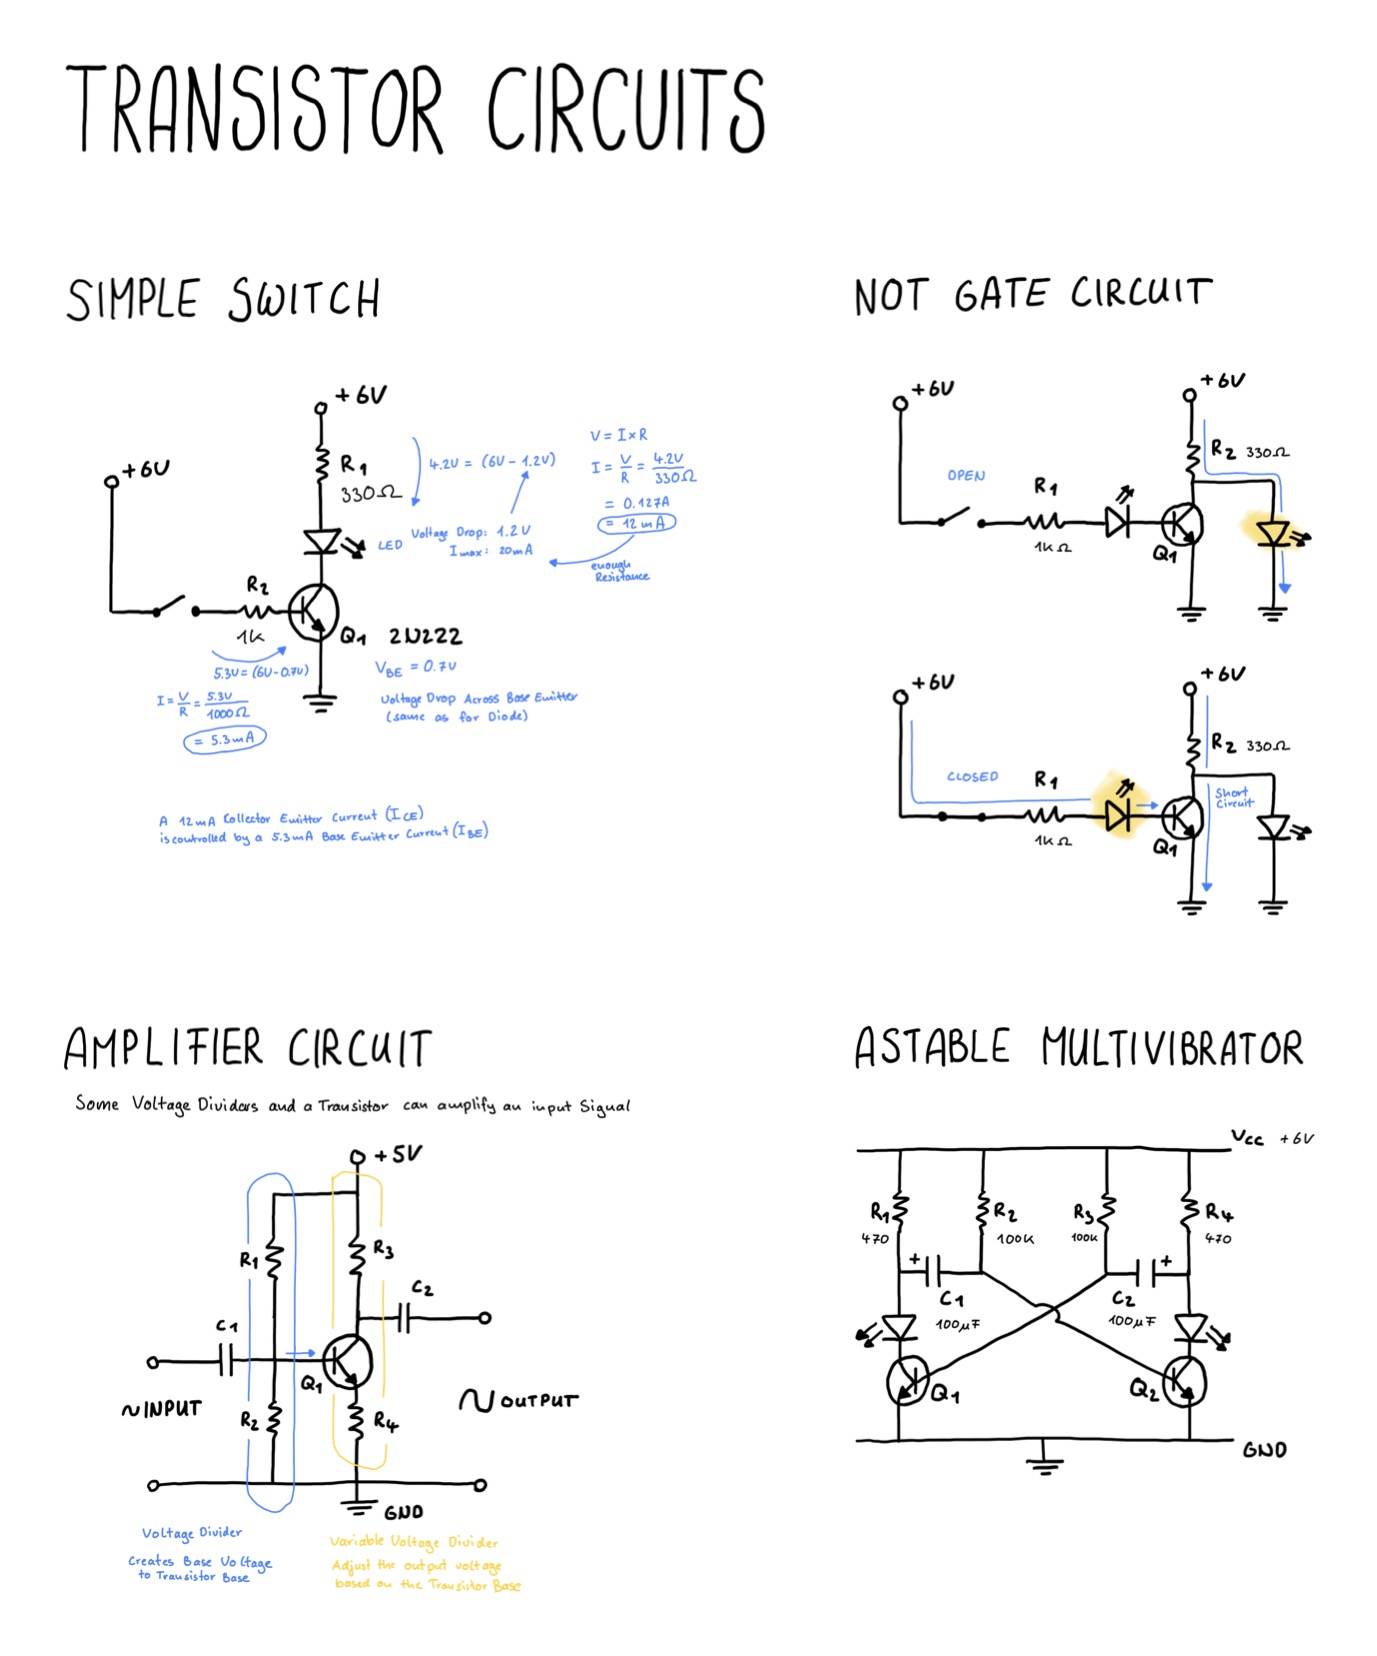 TRANSISTOR CIRCUITS
SIMPLE SWITCH
+6V
+6V
R1
330Ω
4.2V = (6V - 1.2V)
V = I×R
I = V/R = 4.2V/330Ω
= 0.127A
= 12mA
LED
Voltage Drop: 1.2V
Imax: 20mA
enough
Resistance
R2
1k
Q1 2N222
5.3V = (6V-0.7V)
I = V/R = 5.3V/1000Ω
= 5.3mA
VBE = 0.7V
Voltage Drop Across Base Emitter
(same as for Diode)
A 12mA Collector Emitter Current (ICE)
is controlled by a 5.3mA Base Emitter Current (IBE)
NOT GATE CIRCUIT
+6V
+6V
R2 330Ω
OPEN
R1
1kΩ
Q1
+6V
+6V
R2 330Ω
CLOSED
R1
1kΩ
Short
Circuit
Q1
AMPLIFIER CIRCUIT
Some Voltage Dividors and a Transistor can amplify an input Signal
+5V
R1
R3
C2
C1
Q1
~INPUT
R2
R4
OUTPUT
GND
Voltage Divider
Creates Base Voltage
to Transistor Base
Variable Voltage Divider
Adjust the output voltage
based on the Transistor Base
ASTABLE MULTIVIBRATOR
Vcc +6V
R1
470
R2
100k
R3
100k
R4
470
+
C1
100µF
C2
100µF
+
Q1
Q2
GND